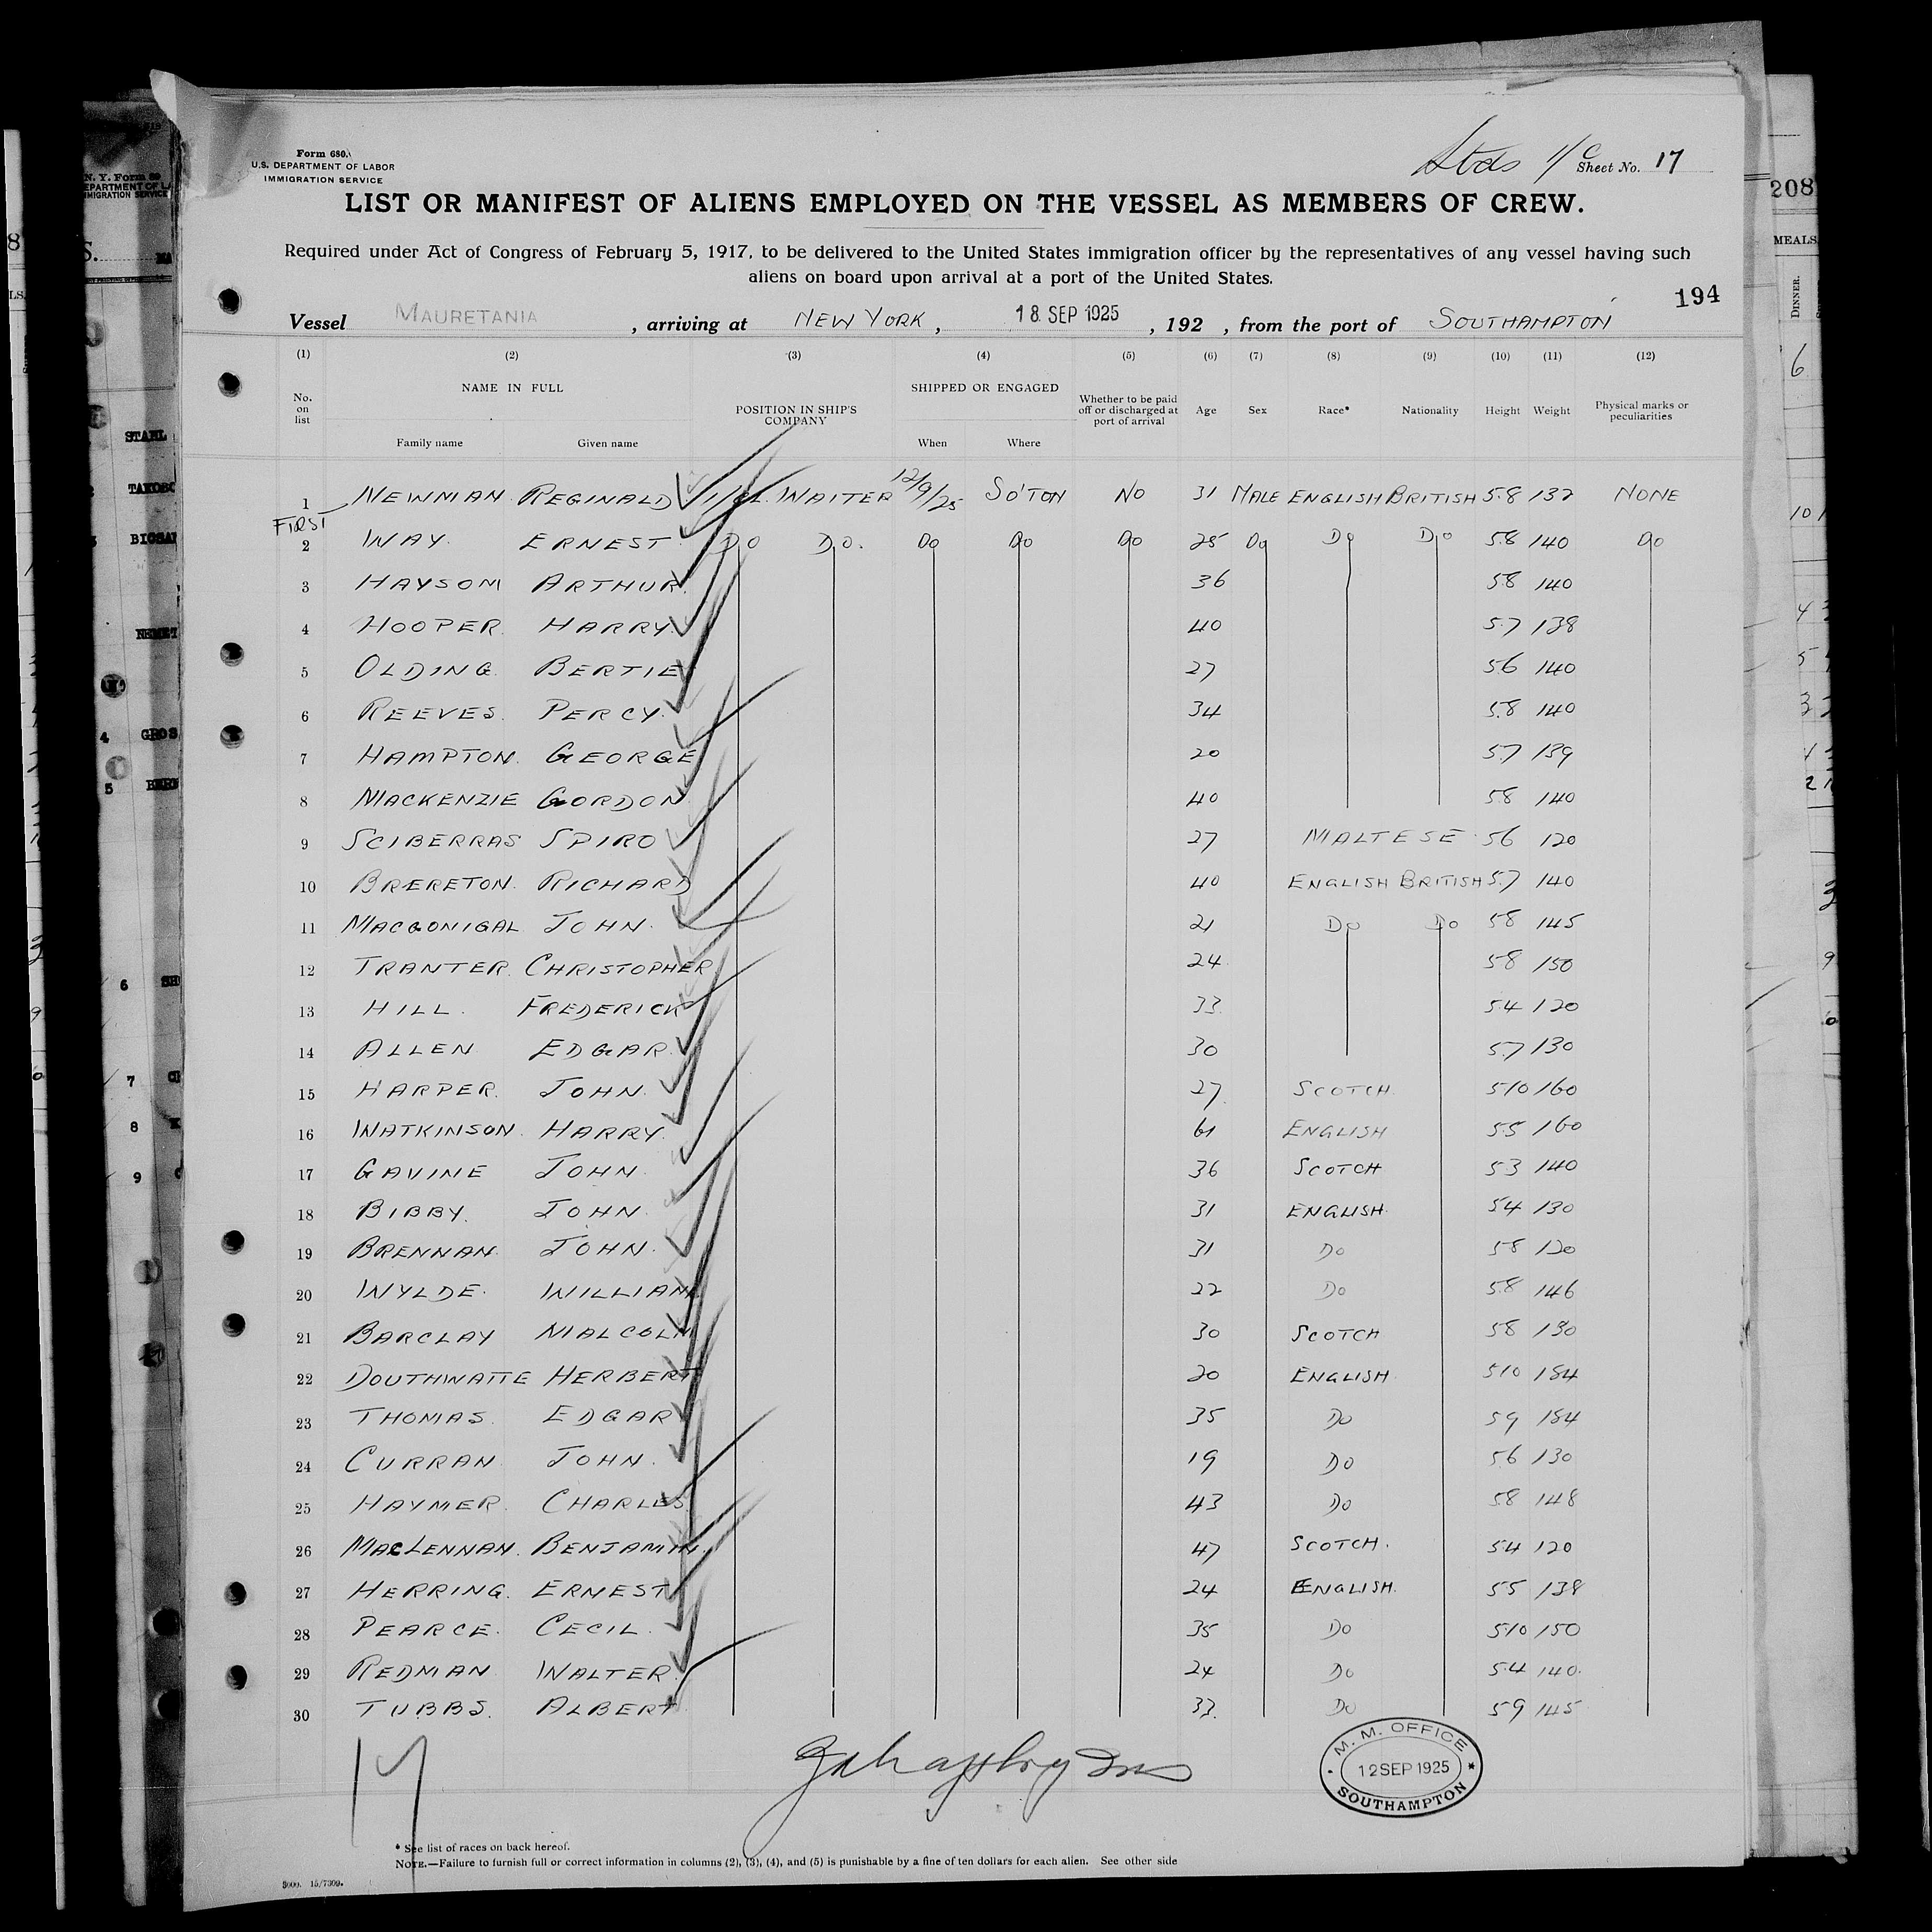 Form 680.
U.S. DEPARTMENT OF LABOR
IMMIGRATION SERVICE
Stds 1/C Sheet No. 17
LIST OR MANIFEST OF ALIENS EMPLOYED ON THE VESSEL AS MEMBERS OF CREW.
Required under Act of Congress of February 5, 1917, to be delivered to the United States immigration officer by the representatives of any vessel having such
aliens on board upon arrival at a port of the United States.
194
Vessel MAURETANIA, arriving at NEW YORK, 18 SEP 1925, 192 , from the port of SOUTHAMPTON
(1) (2) (3) (4) (5) (6) (7) (8) (9) (10) (11) (12)
No. on list NAME IN FULL Family name Given name POSITION IN SHIP'S COMPANY SHIPPED OR ENGAGED When Where Whether to be paid off or discharged at port of arrival Age Sex Race* Nationality Height Weight Physical marks or peculiarities
1 NEWMAN REGINALD 1/CL. WAITER 12/9/25 SO'TON NO 31 MALE ENGLISH BRITISH 5.8 132 NONE
FIRST
2 WAY ERNEST DO DO. DO DO DO 25 DO DO DO 5.8 140 DO
3 HAYSOM ARTHUR 36 58 140
4 HOOPER HARRY 40 5.7 138
5 OLDING BERTIE 27 56 140
6 REEVES PERCY 34 5.8 140
7 HAMPTON GEORGE 20 5.7 139
8 MACKENZIE GORDON 40 58 140
9 SCIBERRAS SPIRO 27 MALTESE 56 120
10 BRERETON RICHARD 40 ENGLISH BRITISH 5.7 140
11 MACGONIGAL JOHN 21 DO DO 58 145
12 TRANTER CHRISTOPHER 24 58 150
13 HILL FREDERICK 33 54 120
14 ALLEN EDGAR 30 5.7 130
15 HARPER JOHN 27 SCOTCH 510 160
16 WATKINSON HARRY 61 ENGLISH 55 160
17 GAVINE JOHN 36 SCOTCH 53 140
18 BIBBY JOHN 31 ENGLISH 54 130
19 BRENNAN JOHN 31 DO 58 120
20 WYLDE WILLIAM 22 DO 58 146
21 BARCLAY MALCOLM 30 SCOTCH 58 130
22 DOUTHWAITE HERBERT 20 ENGLISH 510 184
23 THOMAS EDGAR 35 DO 59 184
24 CURRAN JOHN 19 DO 56 130
25 HAYMER CHARLES 43 DO 58 148
26 MACLENNAN BENJAMIN 47 SCOTCH 54 120
27 HERRING ERNEST 24 ENGLISH 55 138
28 PEARCE CECIL 35 DO 510 150
29 REDMAN WALTER 24 DO 54 140
30 TUBBS ALBERT 33 DO 59 145
17
M. M. OFFICE
12 SEP 1925
SOUTHAMPTON
* See list of races on back hereof.
NOTE.—Failure to furnish full or correct information in columns (2), (3), (4), and (5) is punishable by a fine of ten dollars for each alien. See other side
5000. 15/7309.